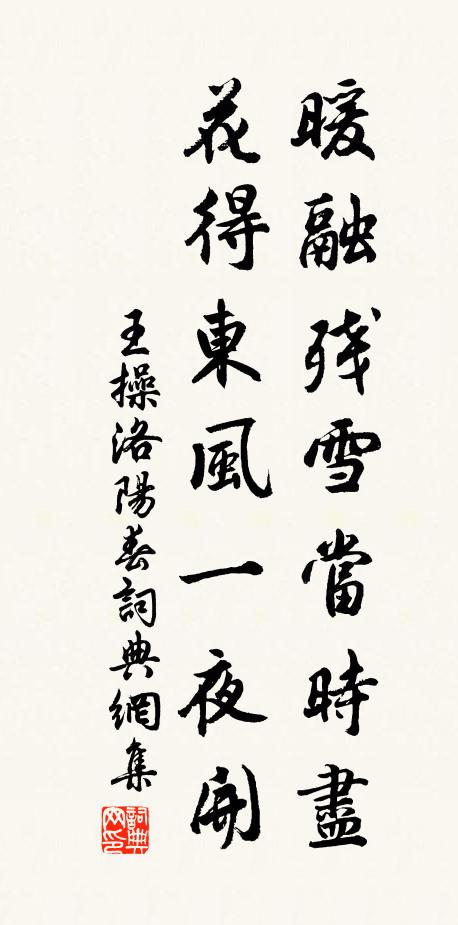 暖融残雪當時盡
花得東風一夜開
王操洛陽春詞典網集
詞典网印